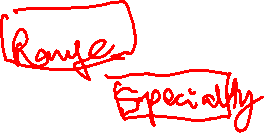 Range
Specially